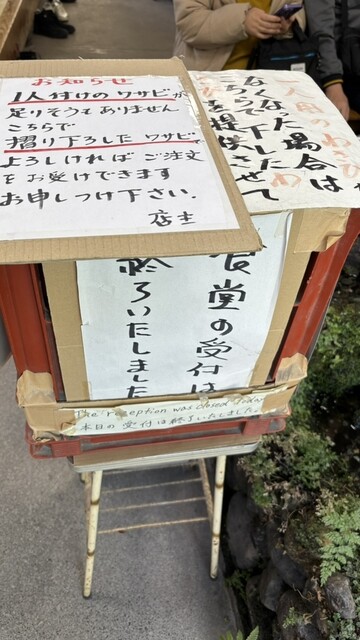 お知らせ
1人付けのワサビが
足りそうもありません
こちらで
摺り下ろしたワサビで
よろしければ ご注文
をお受けできます
お申しつけ下さい.
店主
なくなった場合は
こちらで下した
を提供させて
食堂の受付は
終了いたしました
The reception was closed today.
本日の 受付は終了いたしました。